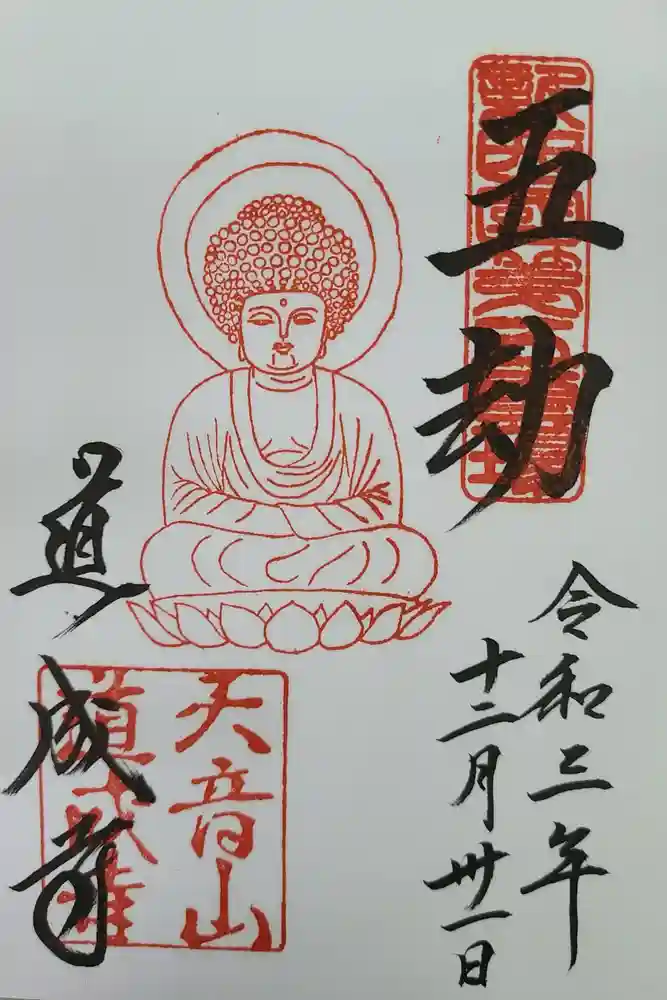 五劫
令和三年
十二月卅一日
道成寺
天音山
道成